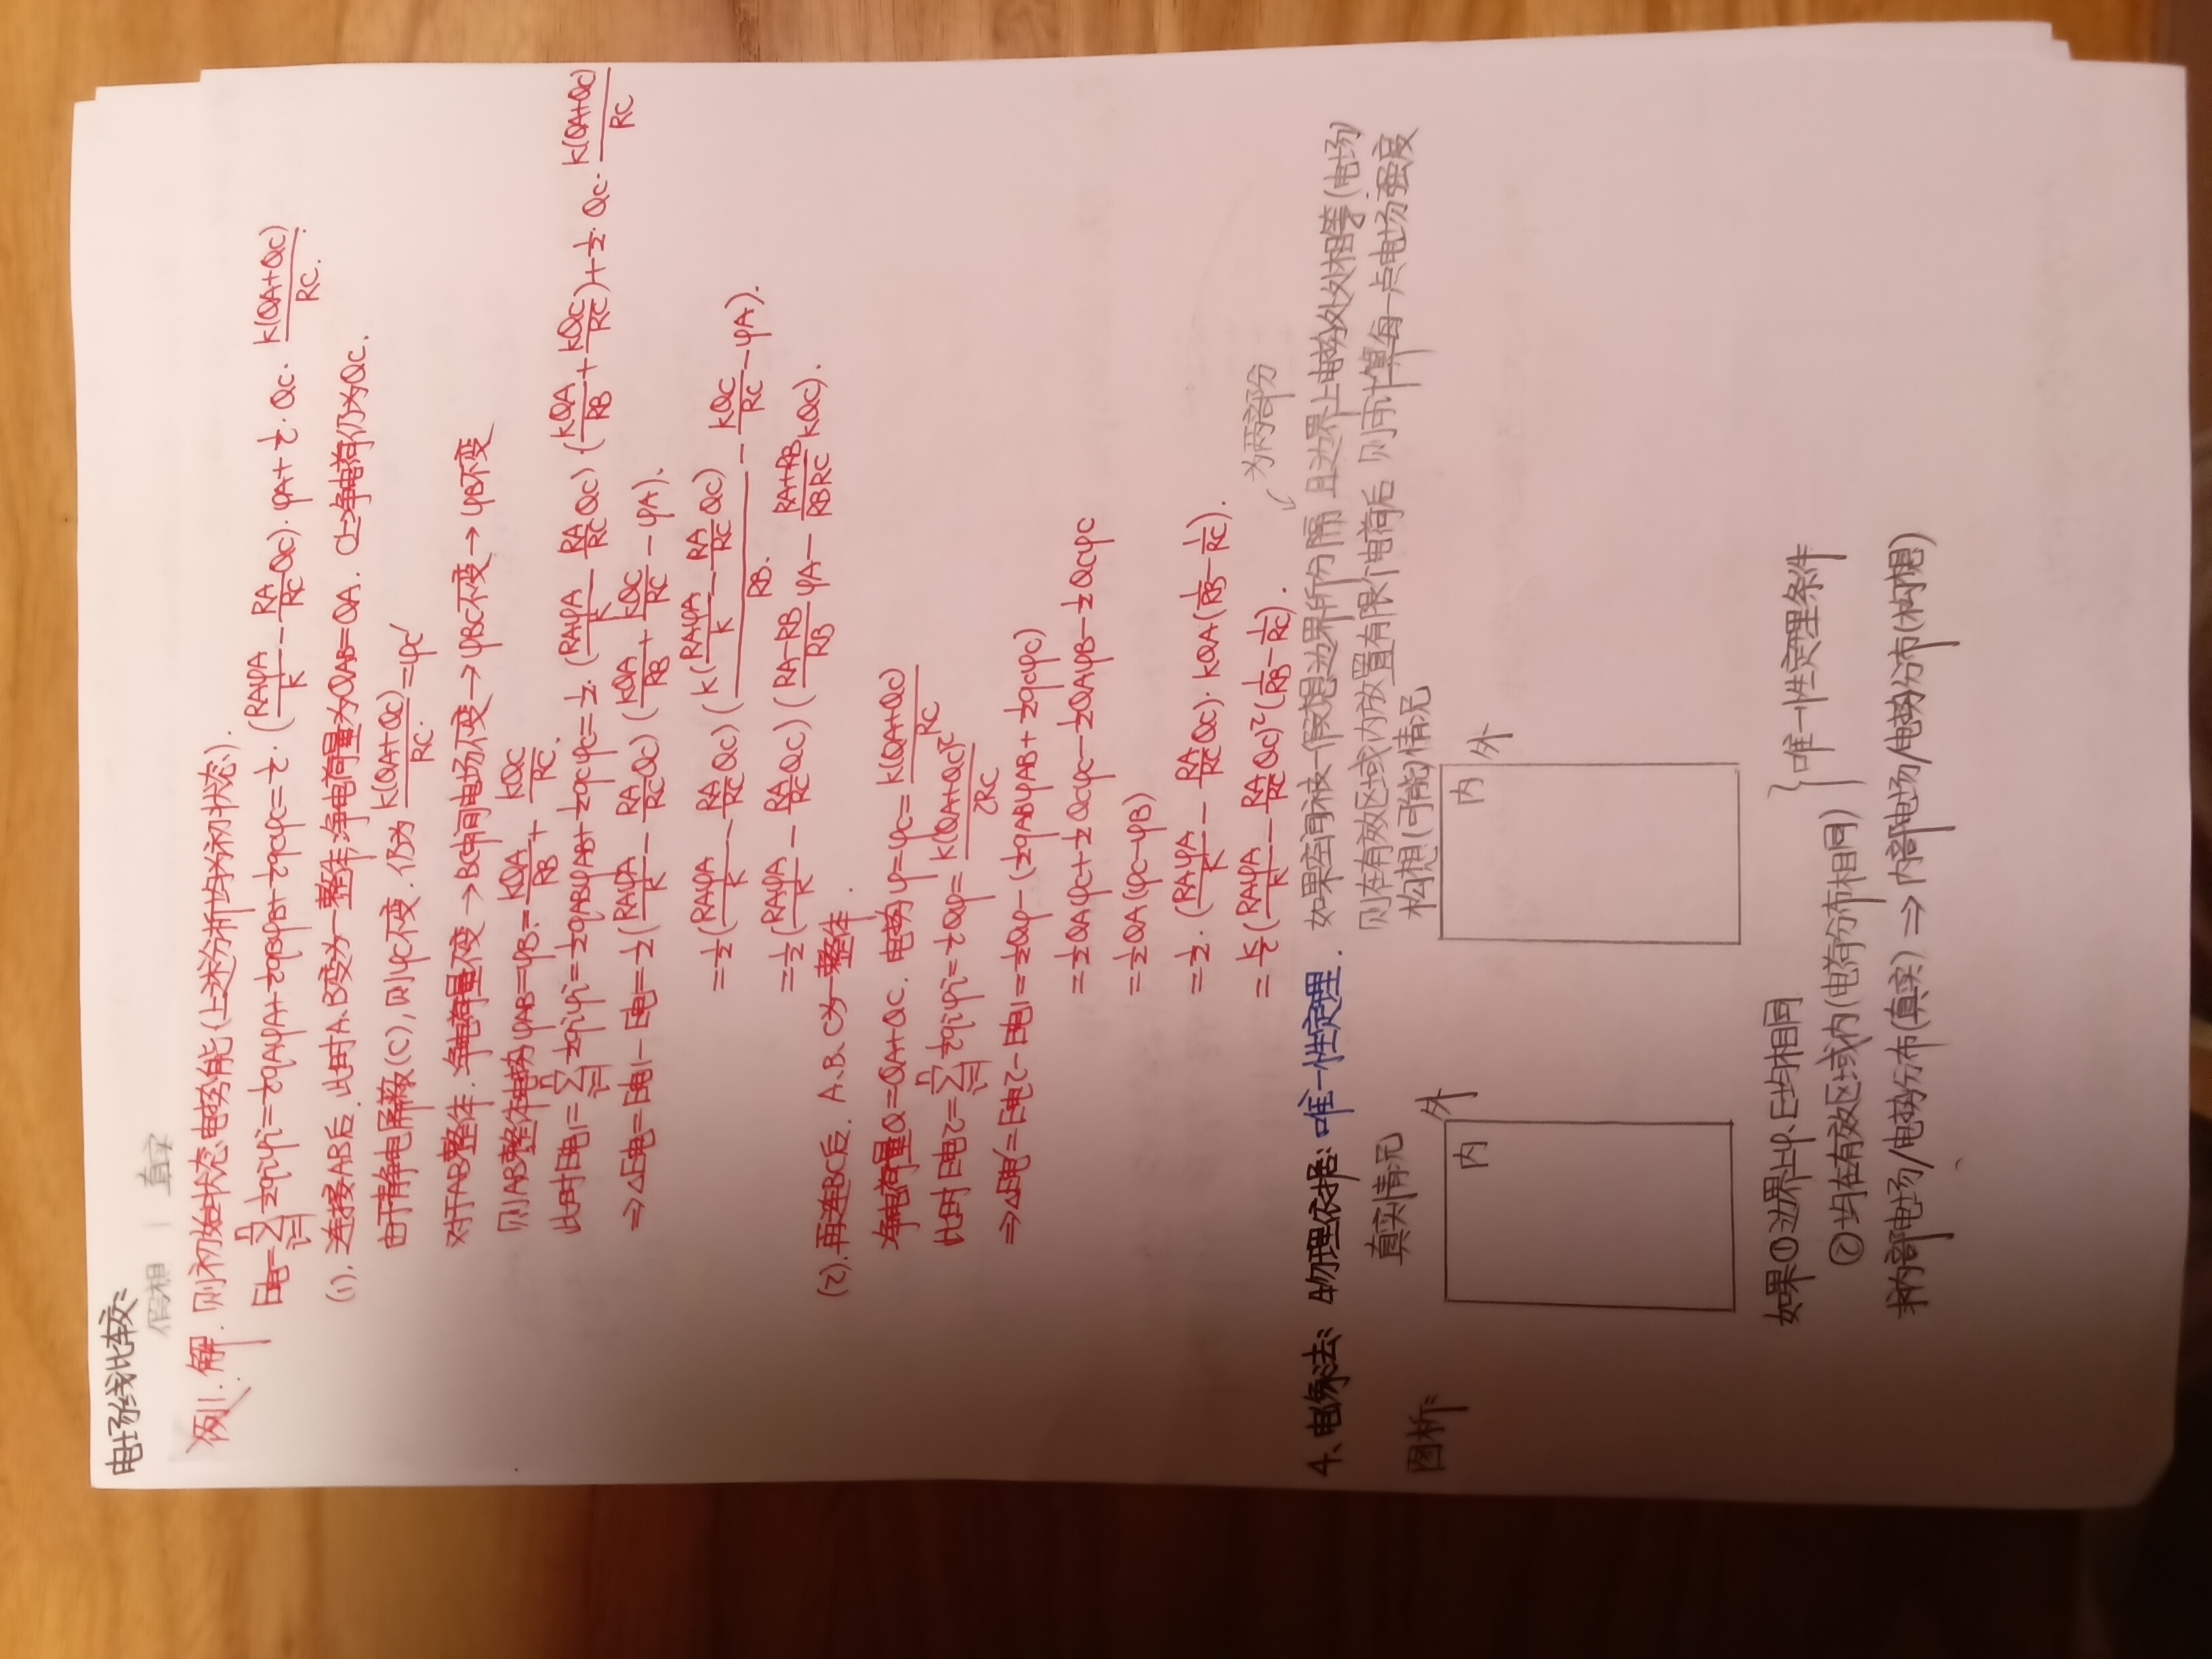 电场线比较:
假想 | 真实
例11.解.则初始状态电势能(上述分析均为初状态).
E电=∑(i=1→n)½qiφi=½qAφA+½qBφB+½qCφC=½·(RAφA/K-RA/RC QC)·φA+½·QC·K(QA+QC)/RC.
(1).连接AB后.此时A、B变为一整体,净电荷量为QAB=QA. C上净电荷仍为QC.
由于静电屏蔽(C),则φC不变.仍为K(QA+QC)/RC.=φC'
对于AB整体.净电荷量不变→BC中间电场不变→φBC不变→φB不变
则AB整体电势φAB=φB=KQA/RB+KQC/RC.
此时E电1=∑(i=1→n)½qiφi=½qABφAB+½qCφC=½·(RAφA/K-RA/RC QC)(KQA/RB+KQC/RC)+½·QC·K(QA+QC)/RC
⇒△E电=E电1-E电=½(RAφA/K-RA/RC QC)(KQA/RB+KQC/RC-φA).
=½(RAφA/K-RA/RC QC)(K(RAφA/K-RA/RC QC)/RB.-KQC/RC-φA).
=½(RAφA/K-RA/RC QC)(RA-RB/RB φA-RA+RB/RBRC KQC).
(2).再连BC后.A、B、C为一整体.
净电荷量Q=QA+QC.电势φ=φC=K(QA+QC)/RC
此时E电2=∑(i=1→n)½qiφi=½Qφ=K(QA+QC)²/2RC
⇒△E电'=E电2-E电1=½Qφ-(½qABφAB+½qCφC)
=½QAφC+½QCφC-½QAφB-½QCφC
=½QA(φC-φB)
=½·(RAφA/K-RA/RC QC)·KQA(1/RB-1/RC).
=K/2(RAφA/K-RA/RC QC)²(1/RB-1/RC).
为两部分
4、电像法:物理依据:唯一性定理.如果空间被一假想边界所分隔 且边界上电势处处相等(电场)
则在有效区域内放置有限个电荷后 则可计算每一点电场强度
图析:
真实情况
构想(可能)情况
内 外
内 外
如果①边界上φ、E均相同
②均在有效区域内(电荷分布相同)
}唯一性定理条件
求内部电场/电势分布(真实)⇒内部电场/电势分布(构想)